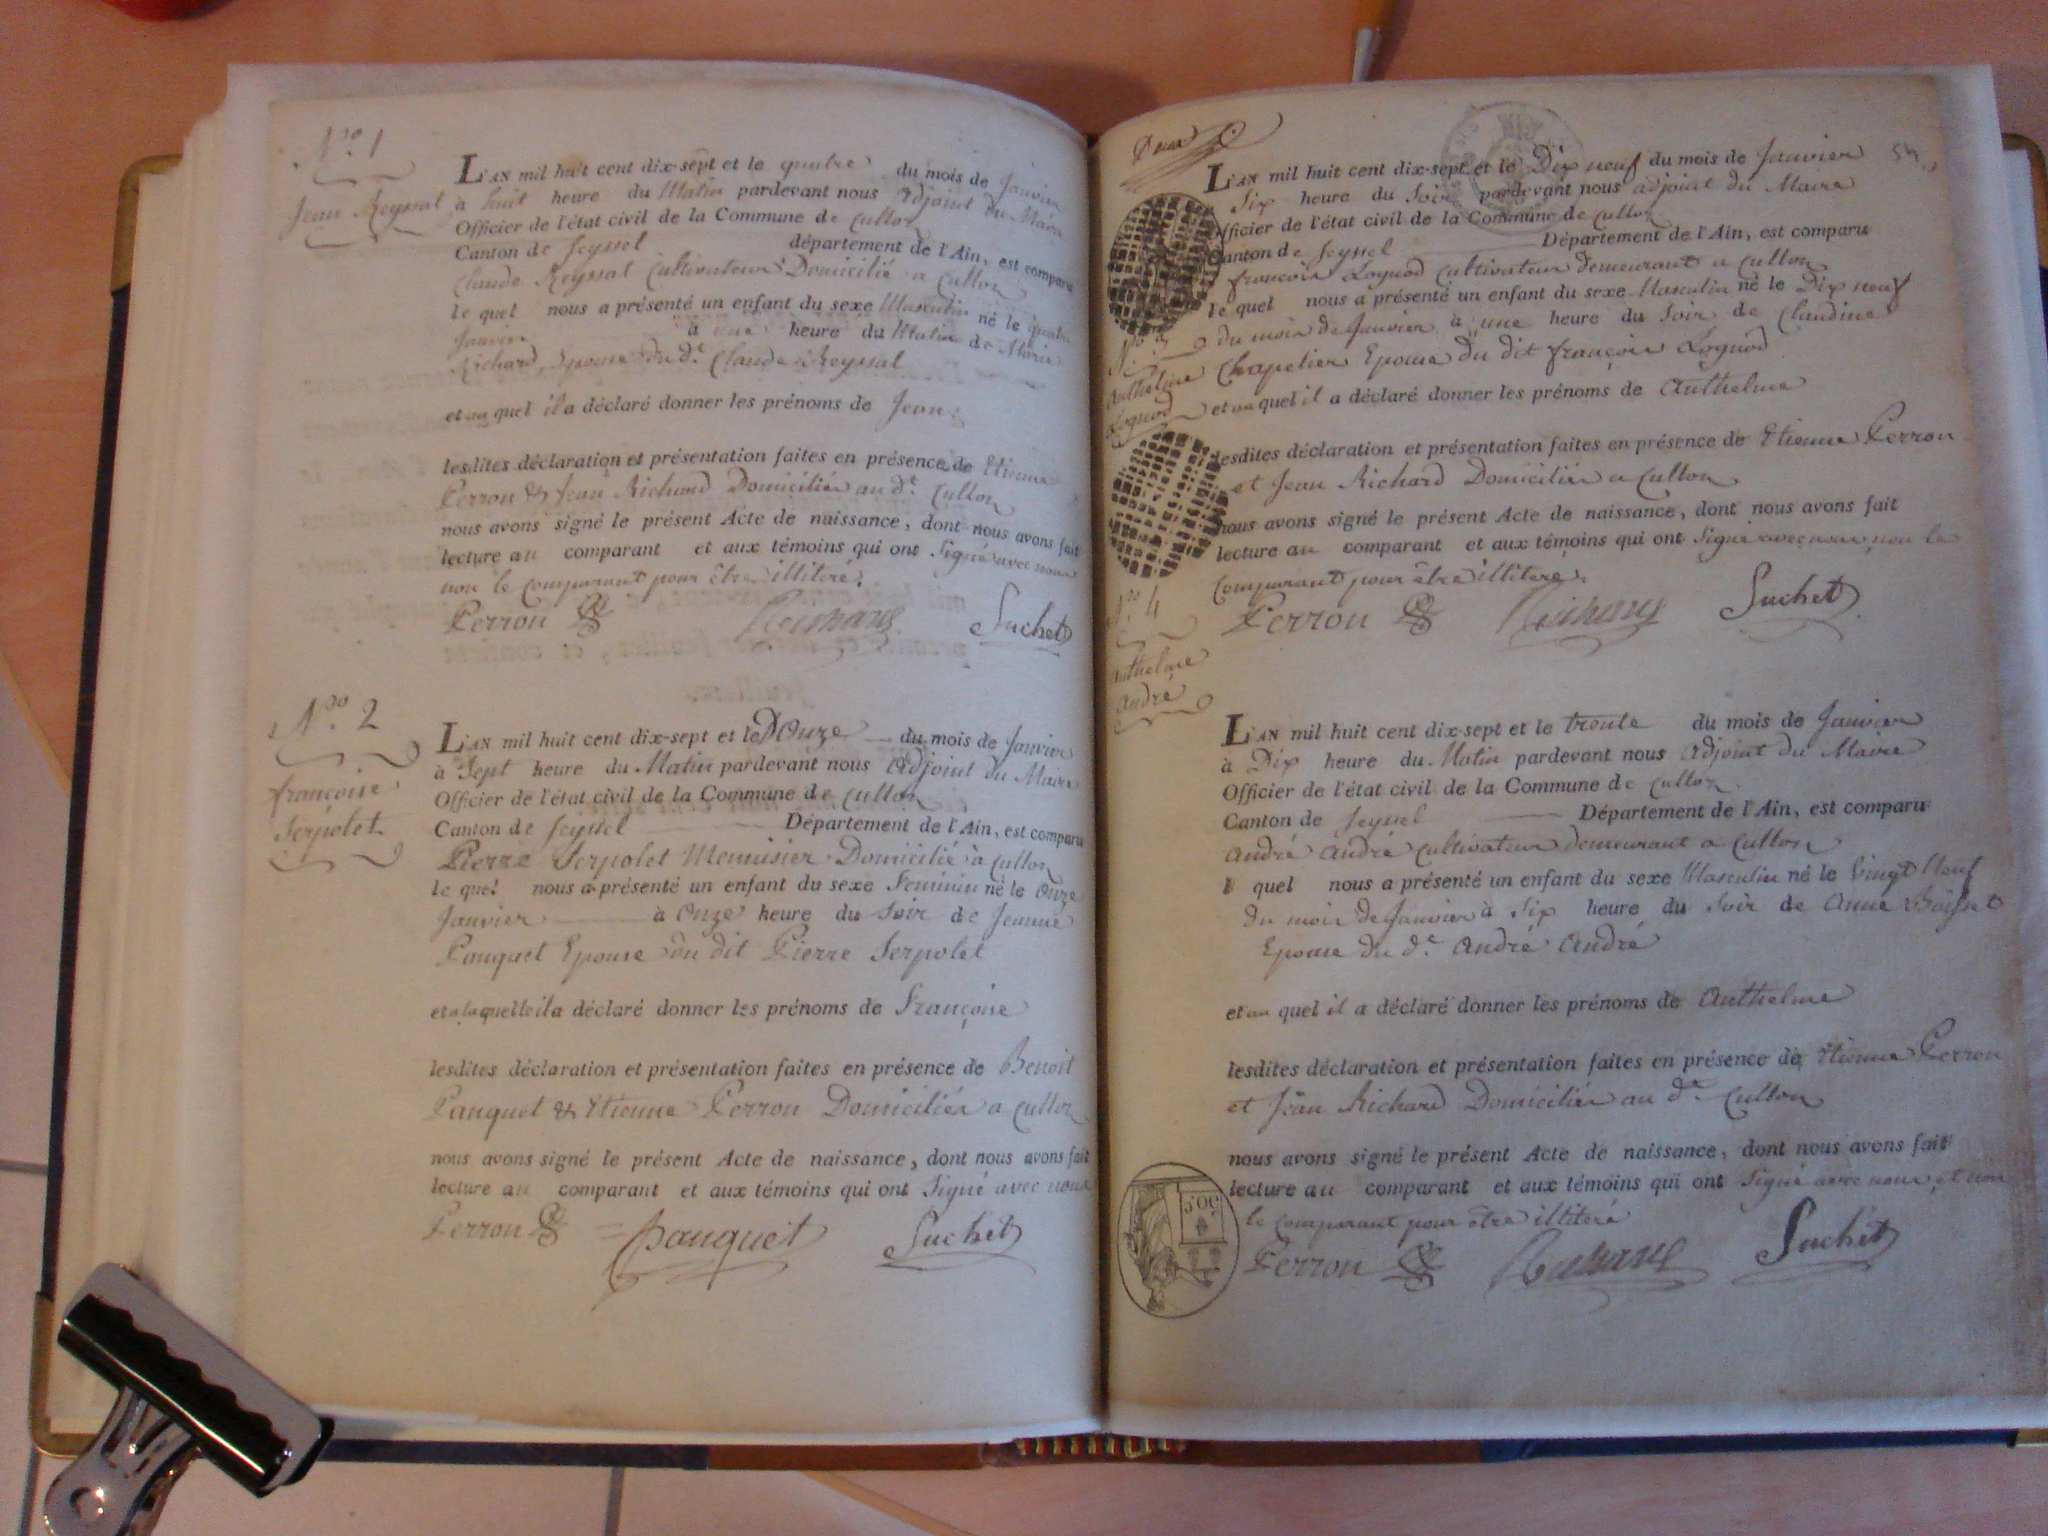 N.ro 1
Jean Reyssal
L'AN mil huit cent dix-sept et le quatre du mois de Janvier
à huit heure du Matin pardevant nous adjoint du Maire
Officier de l'état civil de la Commune de Culloz
Canton de Seyssel département de l'Ain, est comparu
Claude Reyssal Cultivateur Domicilié a Culloz
le quel nous a présenté un enfant du sexe Masculin né le quatre
Janvier à une heure du Matin de Marie
Richard, Epouse du d.t Claude Reyssal
et au quel il a déclaré donner les prénoms de Jean
lesdites déclaration et présentation faites en présence de Etienne
Perron & Jean Richard Domiciliés au d.t Culloz
nous avons signé le présent Acte de naissance, dont nous avons fait
lecture au comparant et aux témoins qui ont Signé avec nous
non le comparant pour être illiteré.
Perron Richard Suchet
N.ro 2
françoise
Serpolet
L'AN mil huit cent dix-sept et le Douze du mois de Janvier
à Sept heure du Matin pardevant nous adjoint du Maire
Officier de l'état civil de la Commune de Culloz
Canton de Seyssel Département de l'Ain, est comparu
Pierre Serpolet Menuisier Domicilié à Culloz
le quel nous a présenté un enfant du sexe Feminin né le onze
Janvier à Onze heure du Soir de Jeanne
Pauquet Epouse du dit Pierre Serpolet
et a laquelle il a déclaré donner les prénoms de Françoise
lesdites déclaration et présentation faites en présence de Benoit
Pauquet & Etienne Perron Domiciliés a Culloz
nous avons signé le présent Acte de naissance, dont nous avons fait
lecture au comparant et aux témoins qui ont Signé avec nous
Perron Pauquet Suchet
Deux
54
L'AN mil huit cent dix-sept et le Dix neuf du mois de Janvier
Six heure du Soir pardevant nous adjoint du Maire
Officier de l'état civil de la Commune de Culloz
Canton de Seyssel Département de l'Ain, est comparu
françois Loguod Cultivateur demeurant a Culloz
le quel nous a présenté un enfant du sexe Masculin né le Dix neuf
du mois de Janvier à une heure du Soir de Claudine
Chapelier Epouse du dit françois Loguod
et au quel il a déclaré donner les prénoms de Anthelme
lesdites déclaration et présentation faites en présence de Etienne Perron
et Jean Richard Domiciliés a Culloz
nous avons signé le présent Acte de naissance, dont nous avons fait
lecture au comparant et aux témoins qui ont Signé avec nous, non le
Comparant pour être illiteré.
Perron Richard Suchet
Anthelme
Loguod
N.ro 4
Anthelme
André
L'AN mil huit cent dix-sept et le trente du mois de Janvier
à Dix heure du Matin pardevant nous adjoint du Maire
Officier de l'état civil de la Commune de Culloz
Canton de Seyssel Département de l'Ain, est comparu
André André cultivateur demeurant a Culloz
l quel nous a présenté un enfant du sexe Masculin né le Vingt Neuf
du mois de Janvier à Six heure du Soir de Anne
Epouse du d.t André André
et au quel il a déclaré donner les prénoms de Anthelme
lesdites déclaration et présentation faites en présence de Etienne Perron
et Jean Richard Domiciliés au d.t Culloz
nous avons signé le présent Acte de naissance, dont nous avons fait
lecture au comparant et aux témoins qui ont Signé avec nous, et non
le comparant pour être illiteré
Perron Richard Suchet